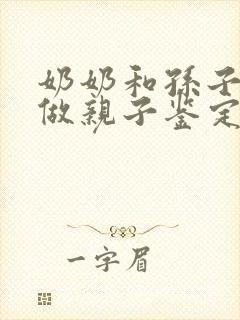 奶奶和孫子
做親子鉴定
一字眉